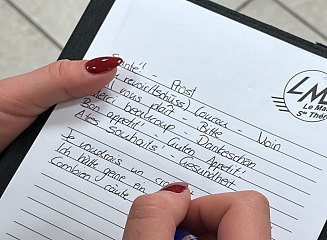 Santé! - Prost
revoir (tschüss) Coucou -
vous plaît - Bitte
Merci beaucoup - Dankeschön
Bon appetit! - Guten Appetit!
À tes Souhaits! - Gesundheit
Je voudrais un
Ich hätte gerne ein
Combien coûte
LM
Le Ma
Ste Thér